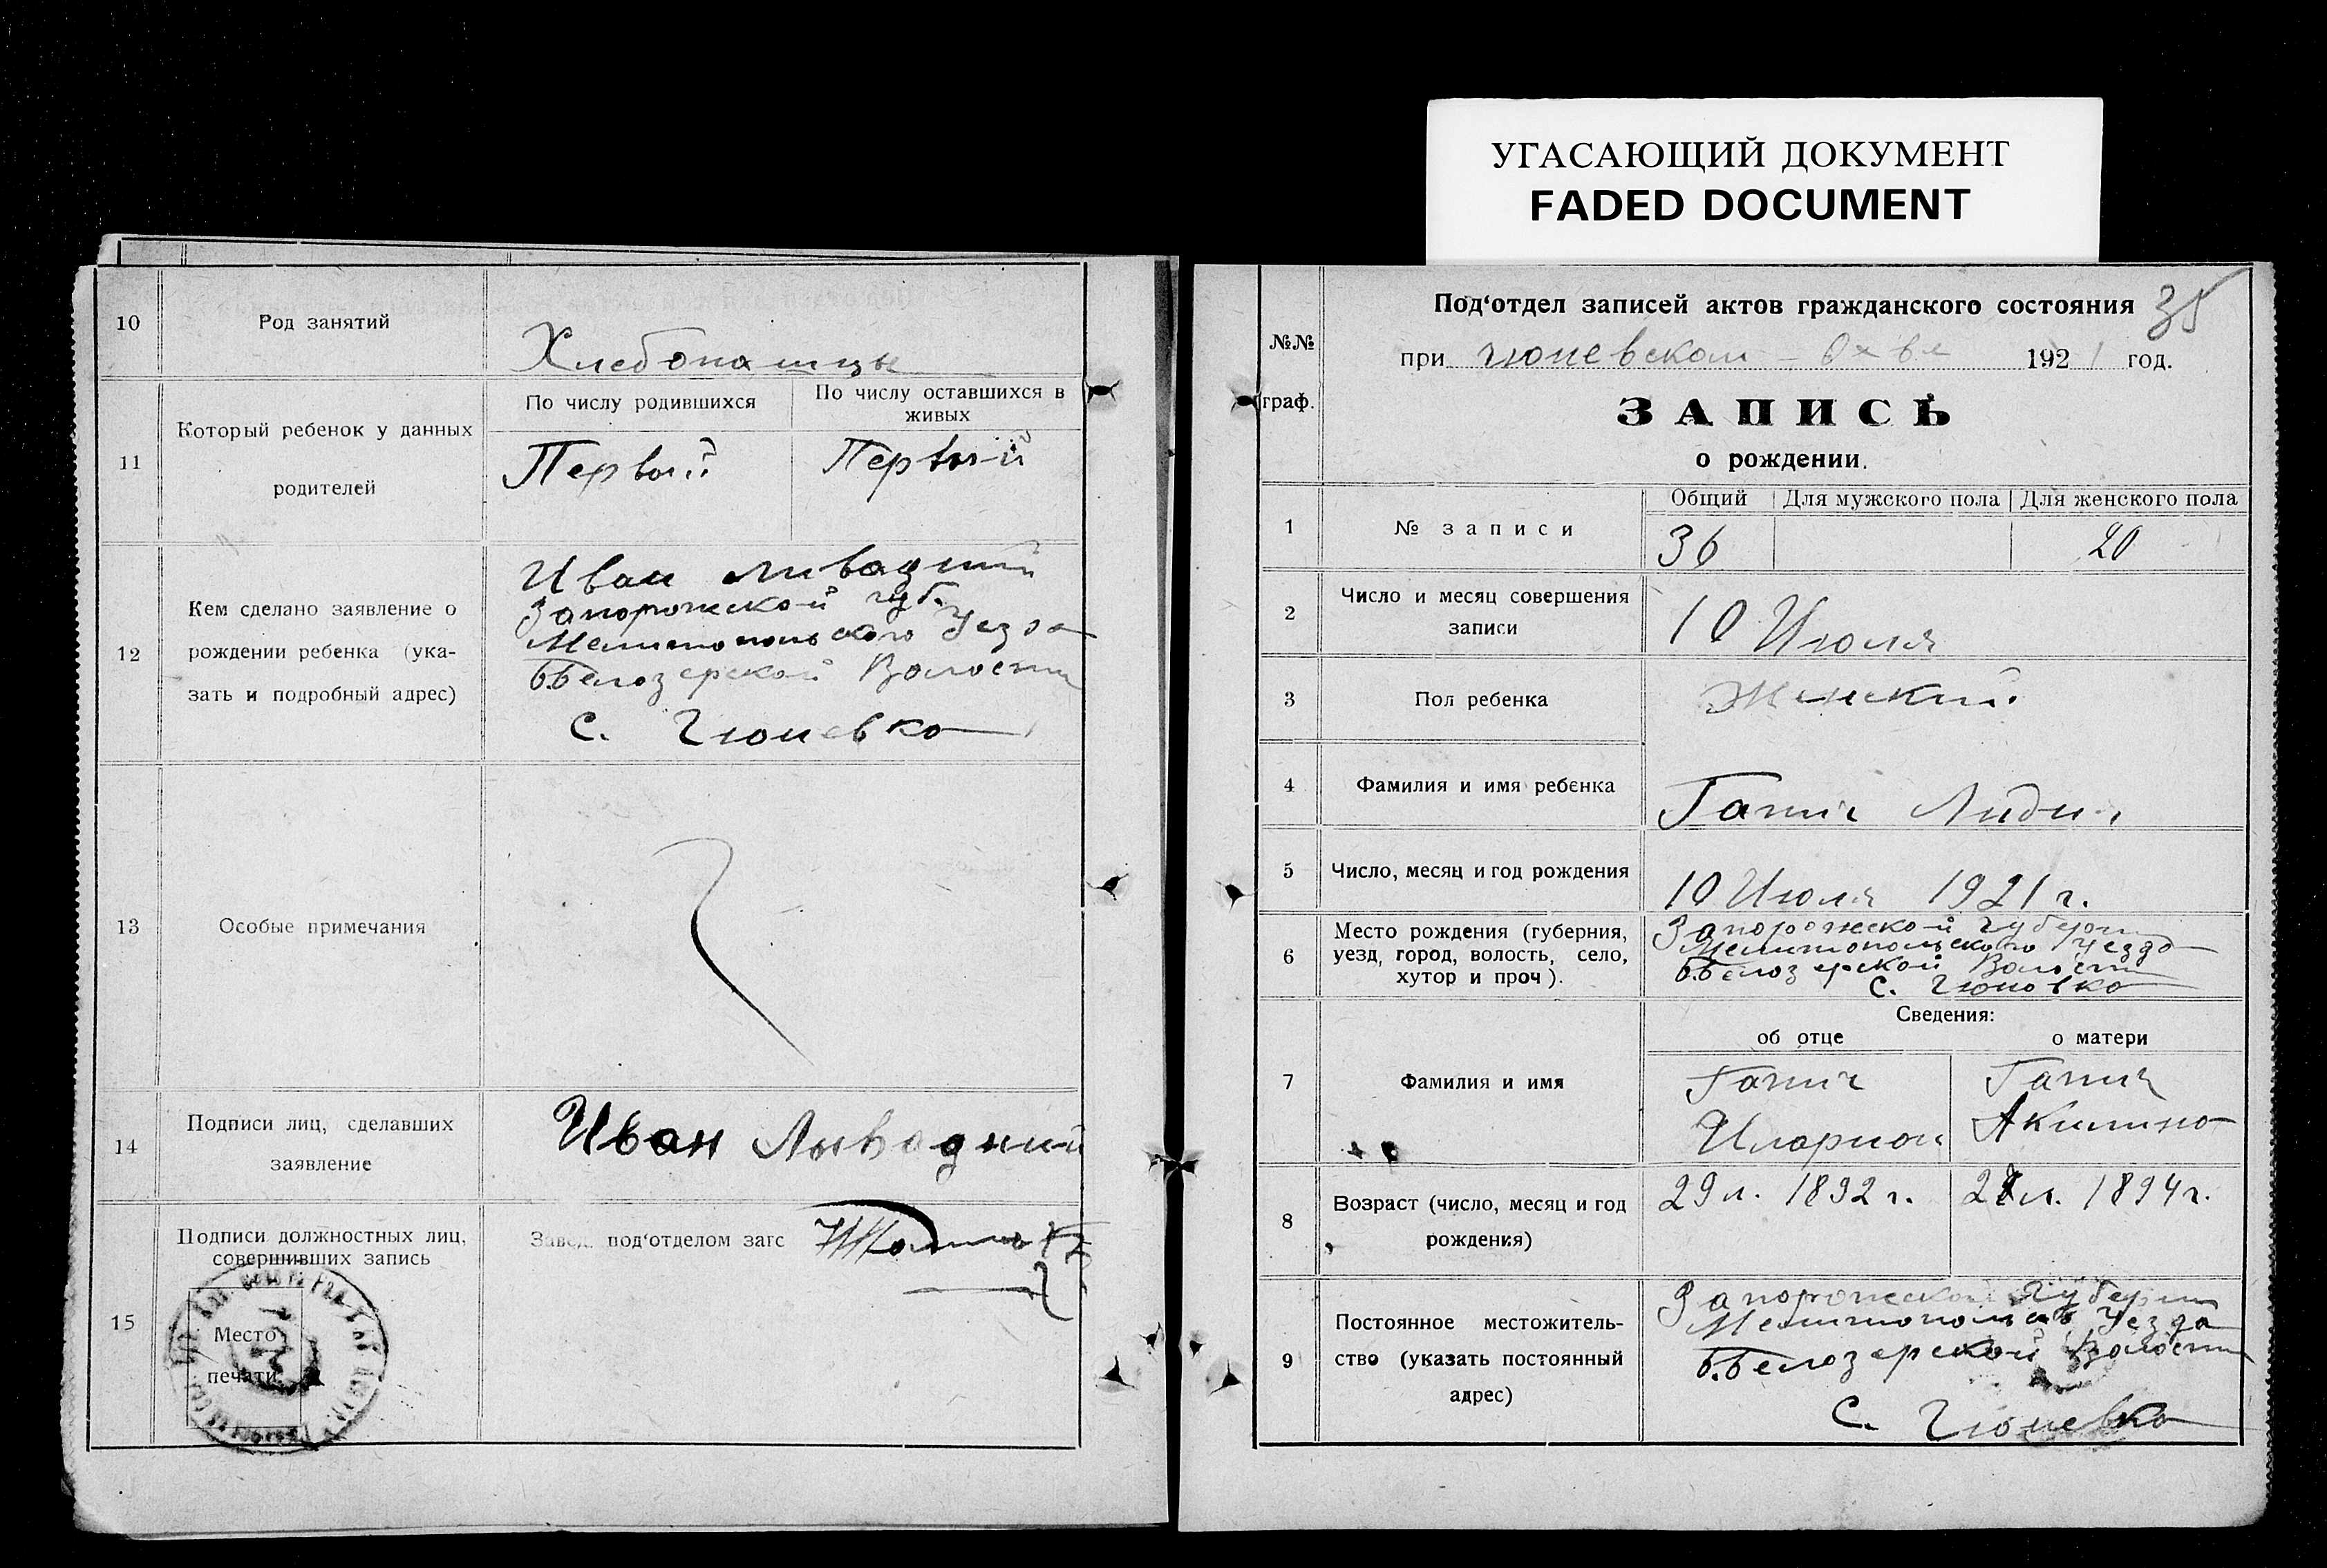 УГАСАЮЩИЙ ДОКУМЕНТ
FADED DOCUMENT
10
Род занятий
Хлебопашцы
11
Который ребенок у данных
родителей
По числу родившихся
По числу оставшихся в
живых
Первый
Первый
12
Кем сделано заявление о
рождении ребенка (ука-
зать и подробный адрес)
Иван Ливадний
Запорожской губ.
Мелитопольского Уезда
Б.Белозерской Волости
С. Гюневка
13
Особые примечания
14
Подписи лиц, сделавших
заявление
Иван Ливадний
15
Подписи должностных лиц,
совершивших запись
Место
печати
Завед. под‘отделом загс
35
№№
граф.
Под‘отдел записей актов гражданского состояния
при Гюневском 1921 год.
ЗАПИСЬ
о рождении.
1
№ записи
Общий
Для мужского пола
Для женского пола
36
20
2
Число и месяц совершения
записи
10 Июля
3
Пол ребенка
Женский.
4
Фамилия и имя ребенка
Гапич Лидия
5
Число, месяц и год рождения
10 Июля 1921 г.
6
Место рождения (губерния,
уезд, город, волость, село,
хутор и проч).
Запорожской Губерни
Мелитопольского Уезда
Б.Белозерской Волости
С. Гюновка
Сведения:
об отце
о матери
7
Фамилия и имя
Гапич
Иларион
Гапич
Акилина
8
Возраст (число, месяц и год
рождения)
29 л. 1892 г.
27 л. 1894 г.
9
Постоянное местожитель-
ство (указать постоянный
адрес)
Запорожской Губерни
Мелитопольск Уезда
Б.Белозерской Волости
С. Гюневка